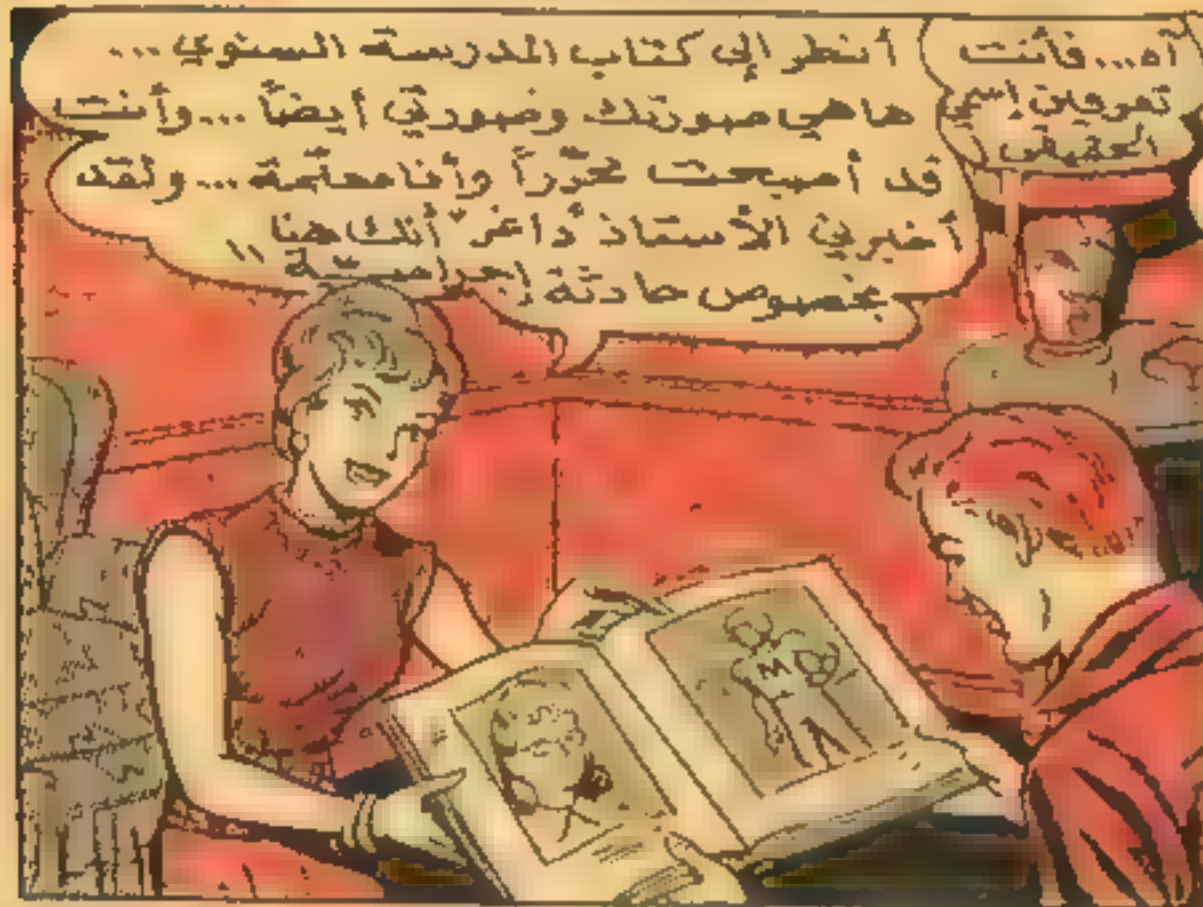 آه... فأنت
تعرفين إسمي
الحقيقي
أنظر إلى كتاب المدرسة السنوي ...
هاهي صورتك وصورتي أيضاً ... وأنت
قد أصبحت محرّراً وأنا معلّمة ... ولقد
أخبرني الأستاذ "داغر" أنك هنا
بخصوص حادثة إجراميّة !!
M